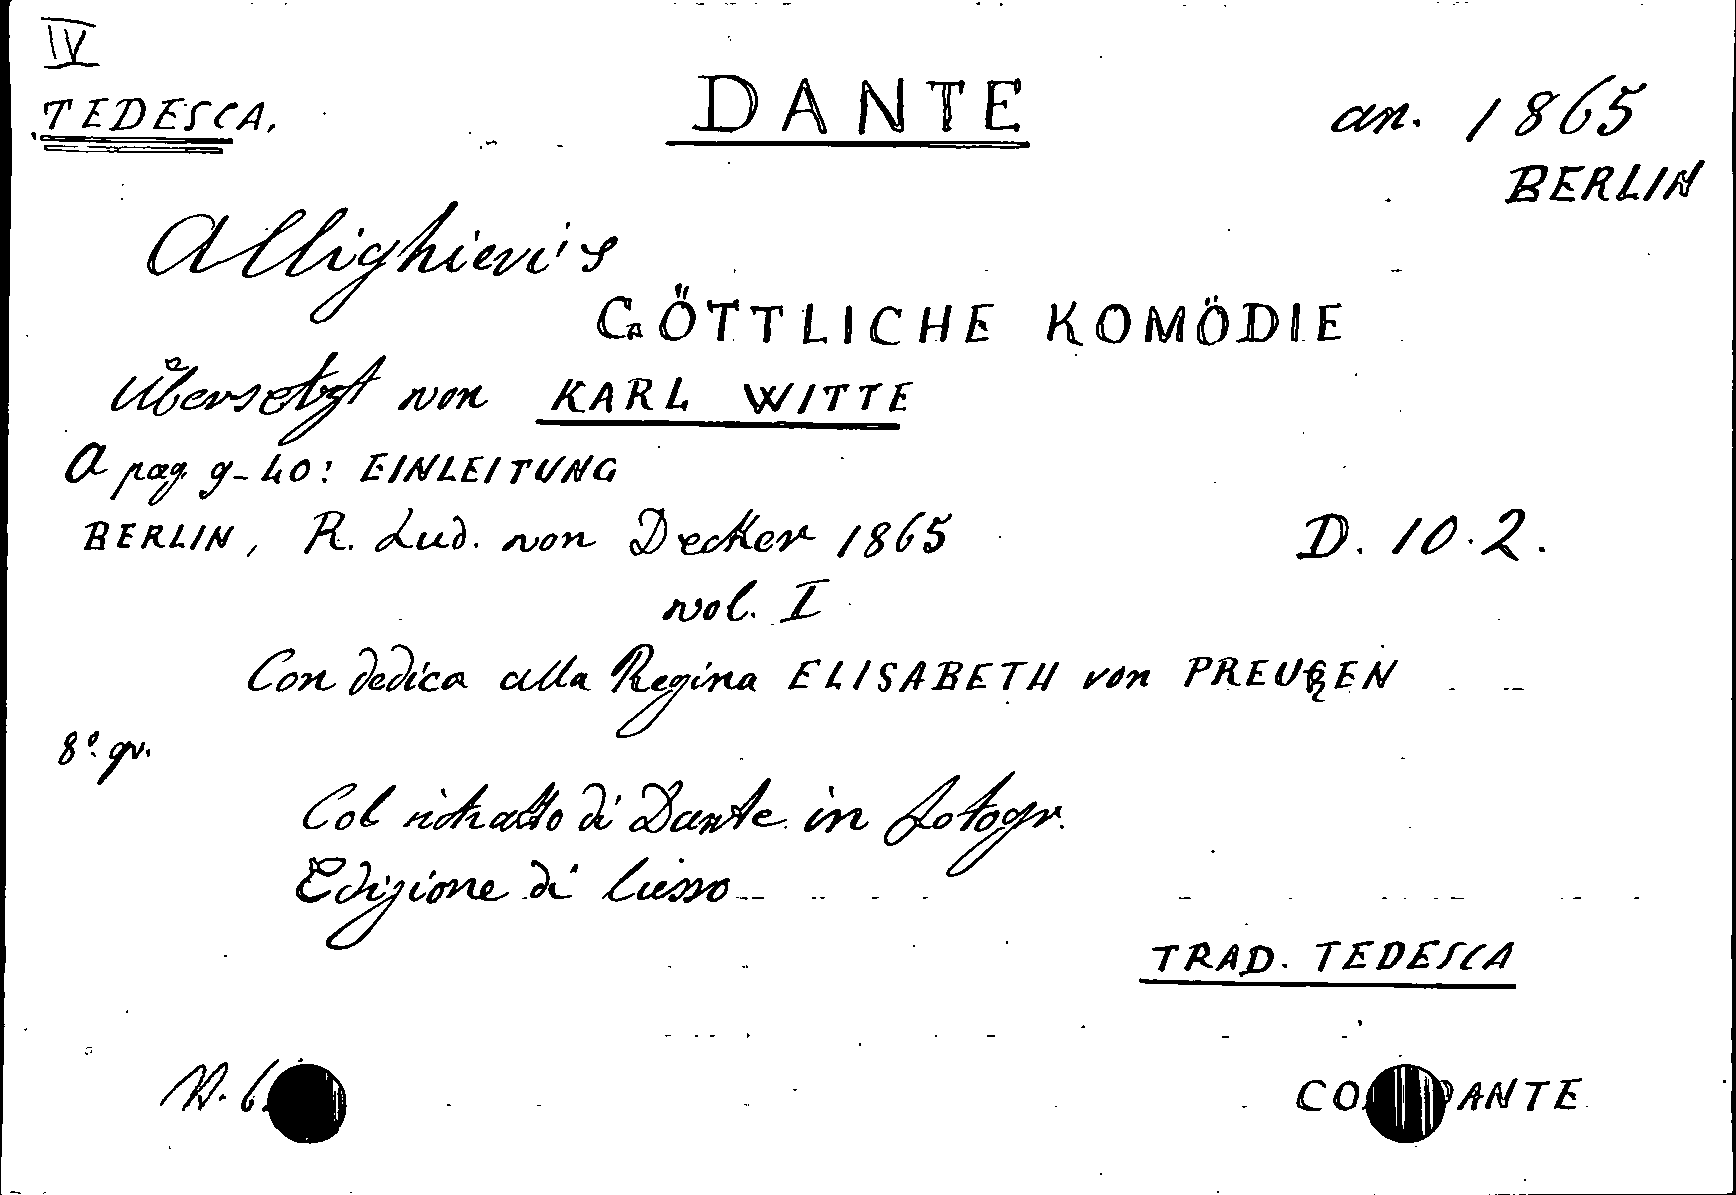 IV
TEDESCA.
DANTE
an. 1865
BERLIN
Allighieri's
GÖTTLICHE KOMÖDIE
Übersetzt von KARL WITTE
A pag. 9-40: EINLEITUNG
BERLIN, R. Lud. von Decker 1865
D. 10.2.
vol. I
Con dedica alla Regina ELISABETH von PREUßEN
8º. gr.
Col ritratto di Dante in fotogr.
Edizione di lusso
TRAD. TEDESCA